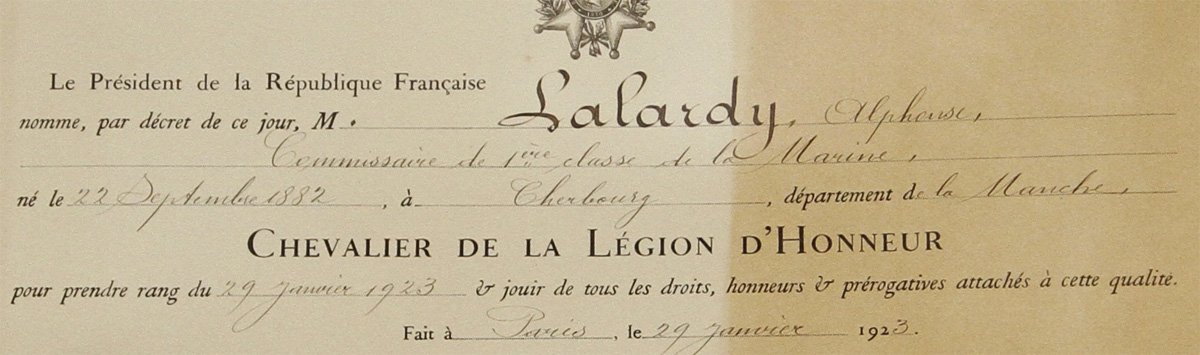 Le Président de la République Française
nomme, par décret de ce jour, M. Lalardy, Alphonse,
Commissaire de 1ère classe de la Marine,
né le 22 Septembre 1882, à Cherbourg, département de la Manche,
CHEVALIER DE LA LÉGION D'HONNEUR
pour prendre rang du 29 Janvier 1923 & jouir de tous les droits, honneurs & prérogatives attachés à cette qualité.
Fait à Paris, le 29 Janvier 1923.